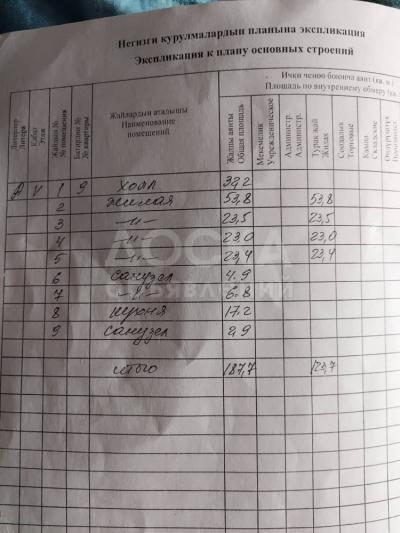 Негизги курулмалардын планына экспликация
Экспликация к плану основных строений
Ички ченөө боюнча аянт (кв. м.)
Площадь по внутреннему обмеру (кв.
Литерлер
Литера
Кабат
Этаж
Жайдын №
№ помещения
Батирдин №
№ квартиры
Жайлардын аталышы
Наименование
помещений
Жалпы аянты
Общая площадь
Мекемелик
Учрежденческие
Админстр.
Администр.
Турак жай
Жилая
Соодалык
Торговые
Кампа
Складские
А V 1 9 Холл 32,2
2 Жилая 53,8 53,8
3 -"- 23,5 23,5
4 -"- 23,0 23,0
5 -"- 23,4 23,4
6 санузел 4.9
7 -"- 6.8
8 кухня 17.2
9 санузел 2,9
итого 187,7 123,7
ДОСКА
ОБЪЯВЛЕНИЙ